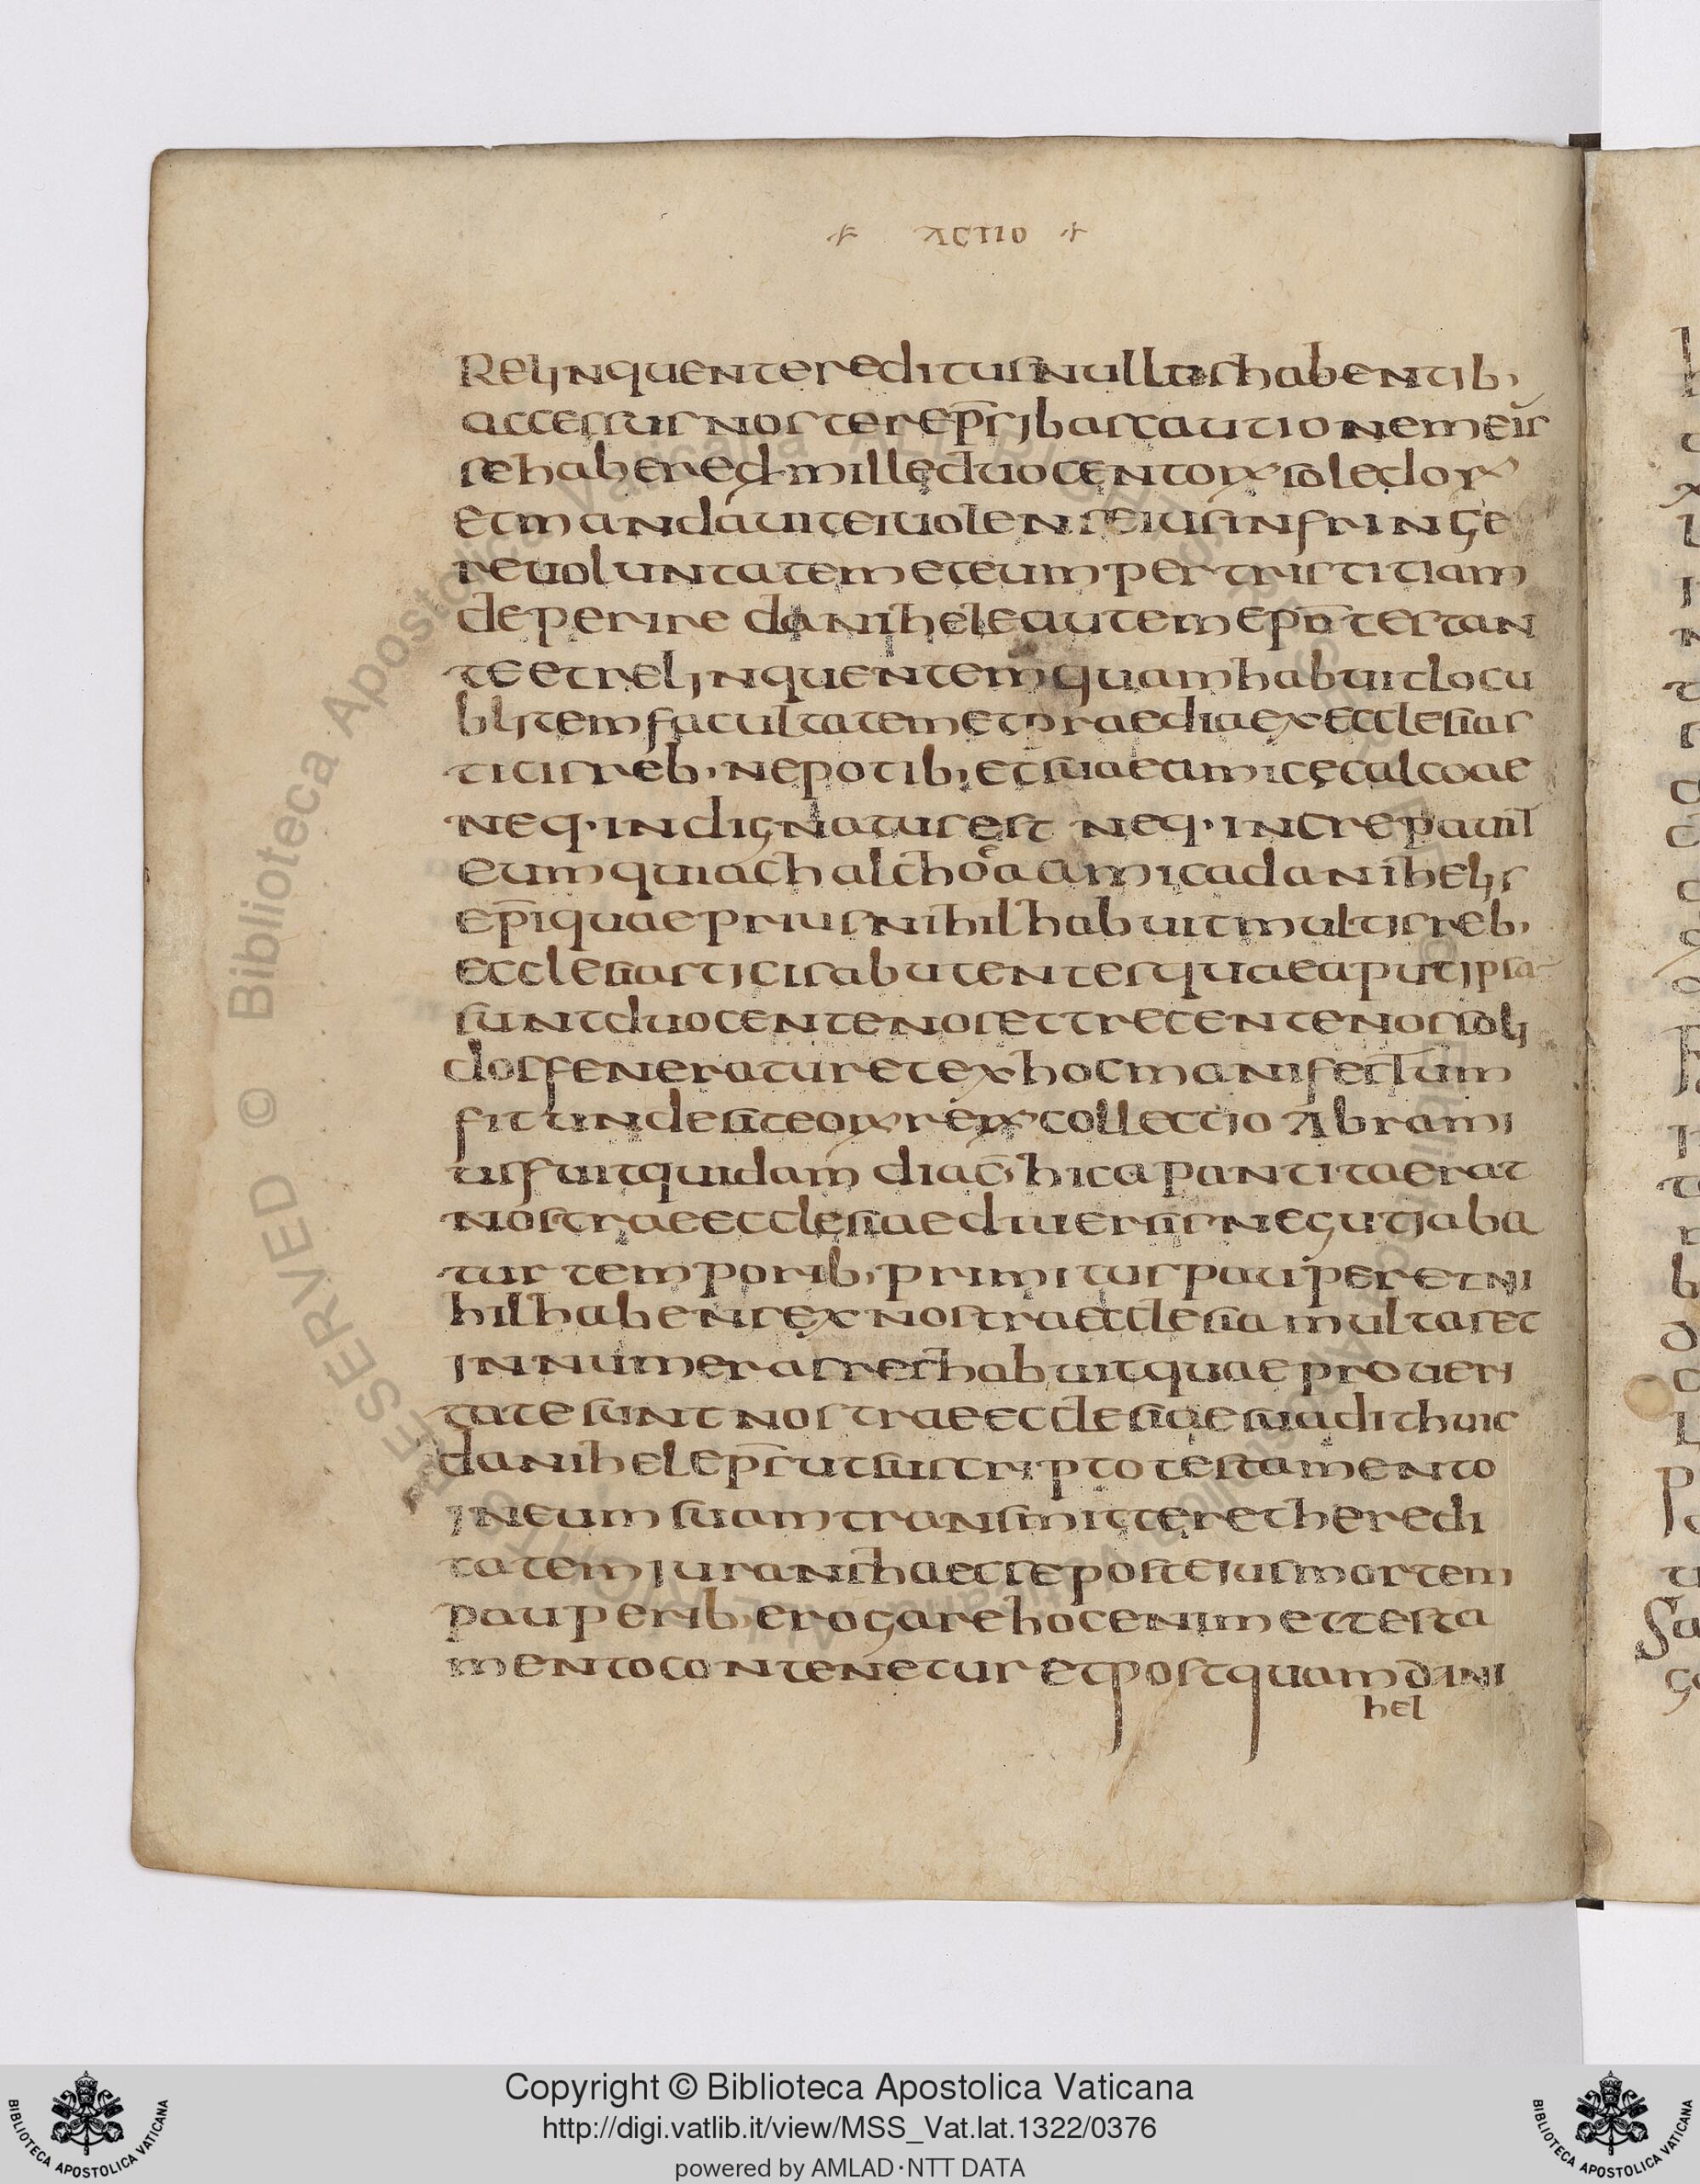 ACTIO
Relinquenteredituſnulluſhabentib,
acceſſuſnoſterep̅ſibaſcautionemeiſ
ſehabered·milleduocentorꝝſoledorꝝ
etmandauiteiuolenſeiuſinfringe
reuoluntatemeteumpertriſtitiam
deperire daniheleautemep̅nteſtan
teetrelinquentemquamhabuitlocu
blitemfacultatemetpraediaexeccleſiaſ
ticiſreb,nepotib,etſuaeamicecalcoae
neq·indignatuſeſt neq·increpauit
eumquiachalchoaeamicadaniheliſ
ep̅iquaepriuſnihilhabuitmultiſreb,
eccleſiaſticiſabutenteſquaeaputipſa
ſuntduocentenoſettrecentenoſſoli
doſfeneraturetexhocmanifeſtum
fitundeſiteorꝝrerꝝcollectio Abrami
uſfuitquidam diac̅,hicapantitaerat
noſtraeeccleſiaediuerſiſnegutiaba
tur temporib,primituſpauperetni
hilhabenſexnoſtraeccleſiamultaſet
innumeraſreſhabuitquaeproueri
tateſuntnoſtraeeccleſiaeſuadithuic
danihelep̅ſutſuiſcriptoteſtamento
ineumſuamtranſmitteretheredi
tatemiuranſhaecſepoſteiuſmortem
pauperib,erogarehocenimetteſta
mentocontenetur etpoſtquamdani
hel
Copyright © Biblioteca Apostolica Vaticana
http://digi.vatlib.it/view/MSS_Vat.lat.1322/0376
powered by AMLAD·NTT DATA
BIBLIOTECA APOSTOLICA VATICANA
BIBLIOTECA APOSTOLICA VATICANA